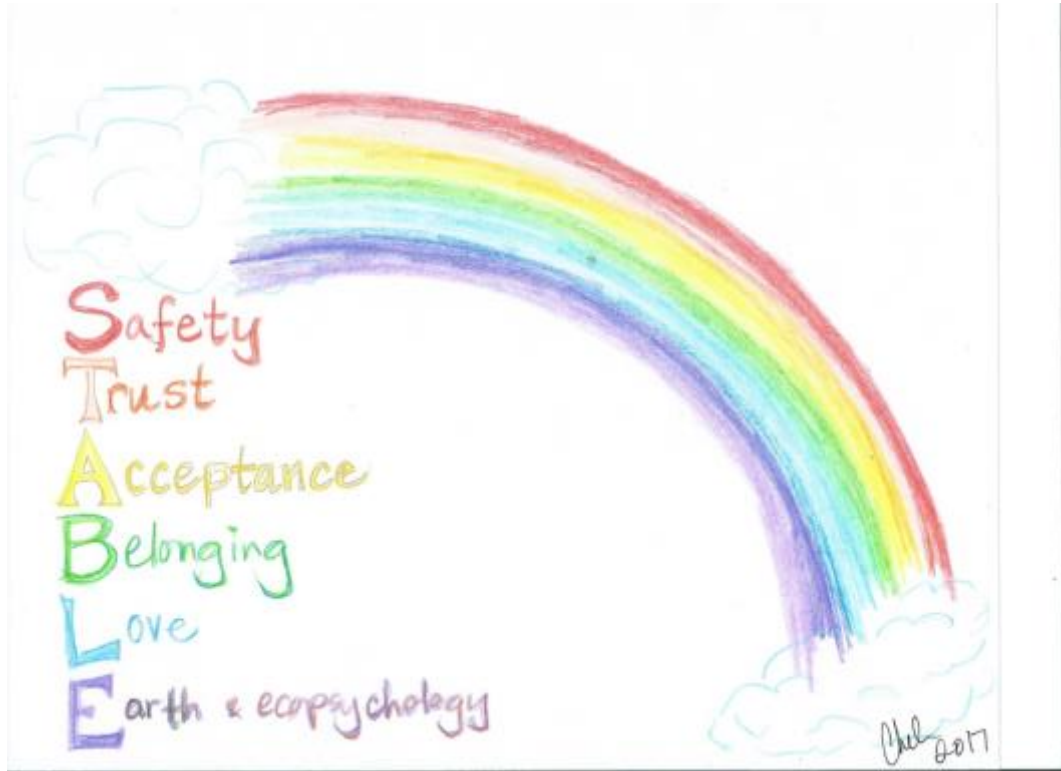 Safety
Trust
Acceptance
Belonging
Love
Earth & ecopsychology
2017